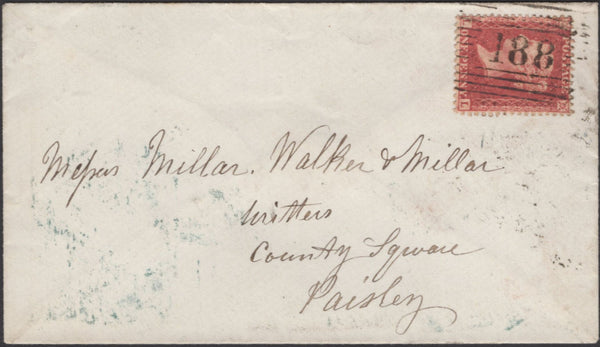 188
Messrs Millar, Walker & Millar
Writters
County Square
Paisley